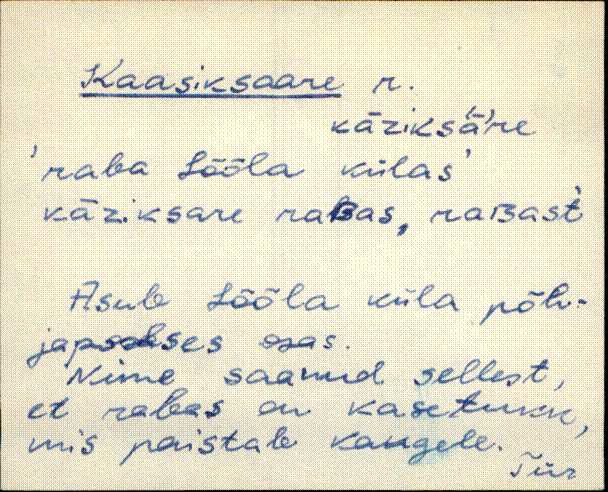 Kaasiksaare r.
kāziksā̆re
'raba Lööla külas'
kāziksare raʙas, raʙast
Asub Lööla küla põh-
japoolses osas.
Nime saanud sellest,
et rabas on kasetukk,
mis paistab kaugele.
Tür